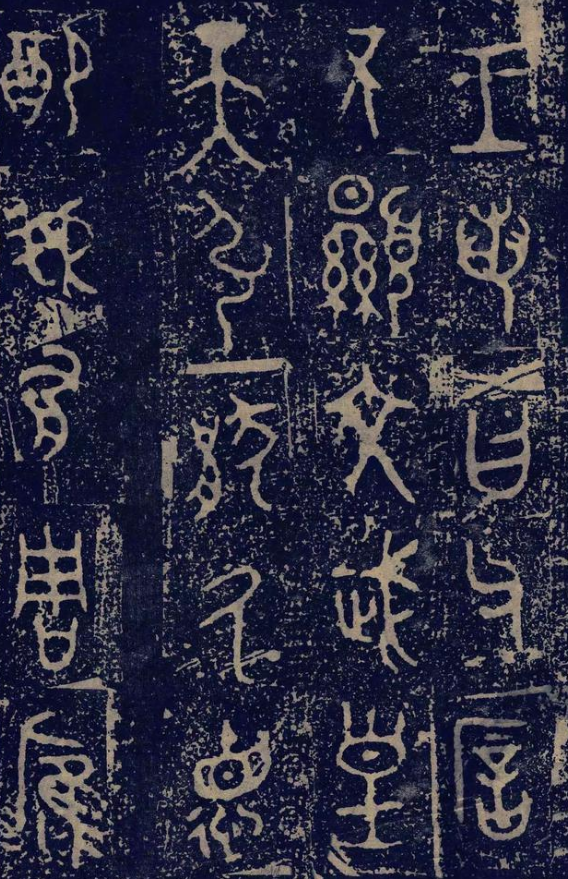 王若曰父
不顯文武皇
天引猒厥德
配我有周膺